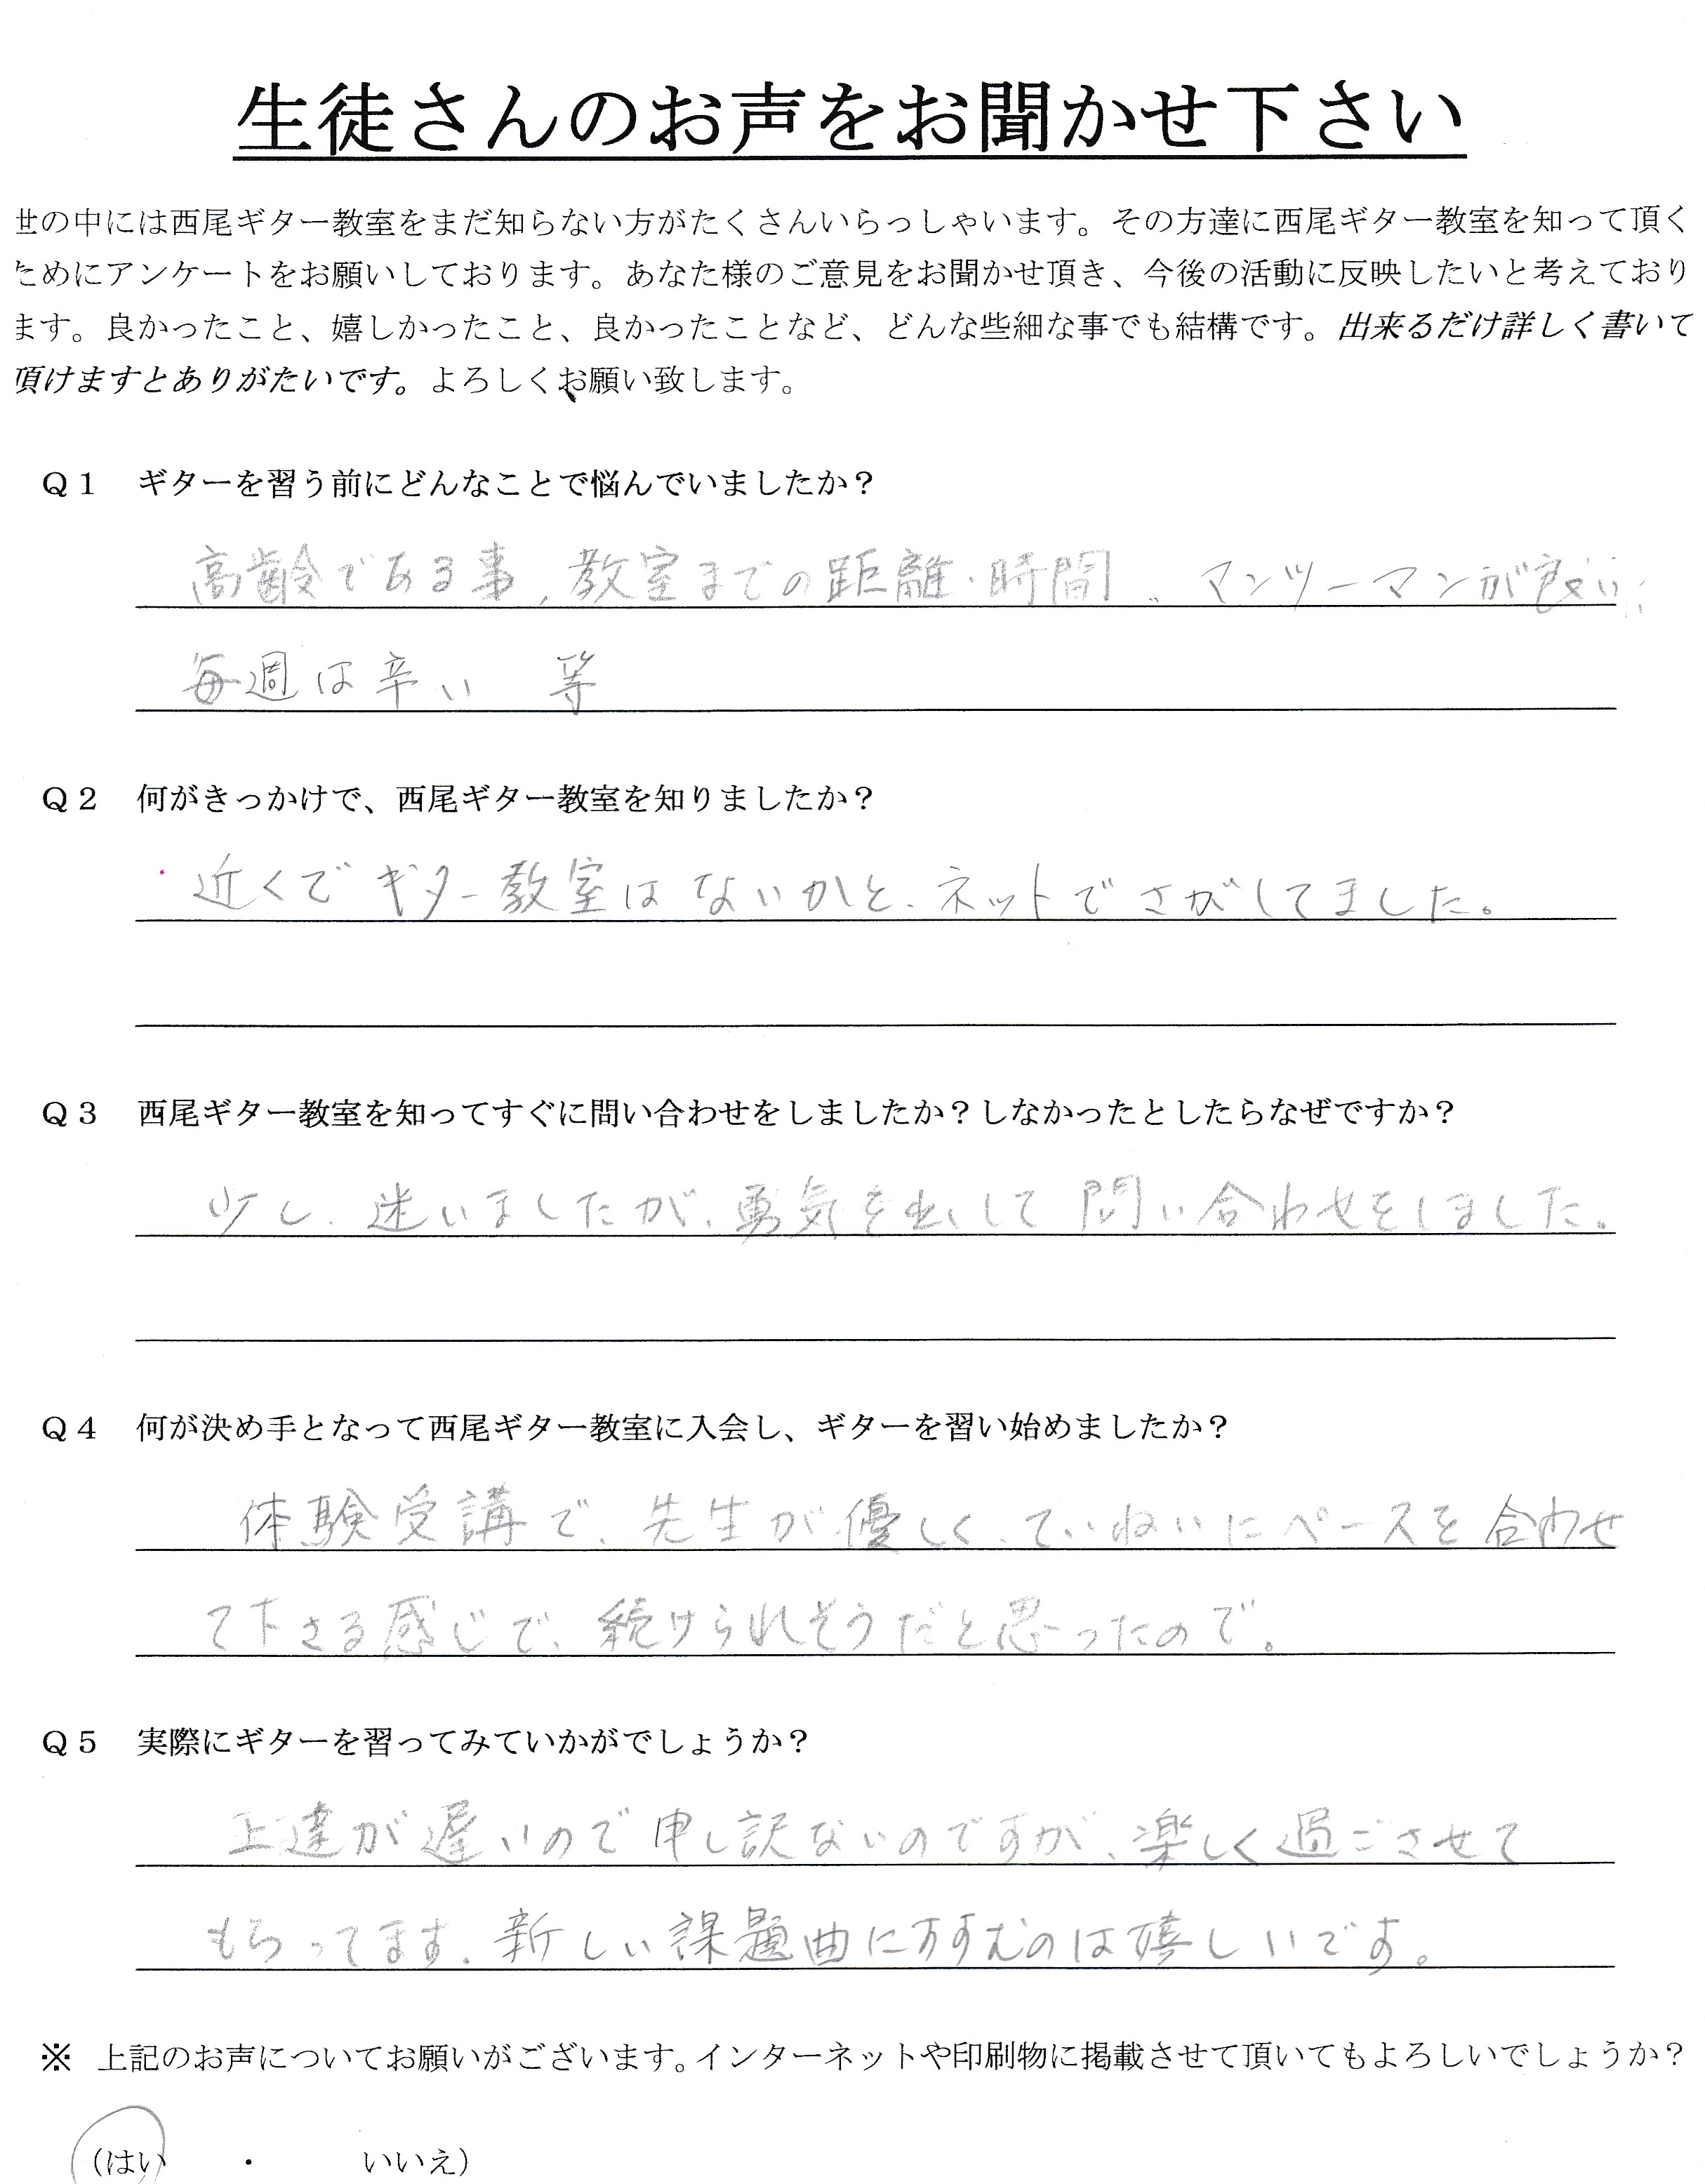 生徒さんのお声をお聞かせ下さい
世の中には西尾ギター教室をまだ知らない方がたくさんいらっしゃいます。その方達に西尾ギター教室を知って頂く
ためにアンケートをお願いしております。あなた様のご意見をお聞かせ頂き、今後の活動に反映したいと考えており
ます。良かったこと、嬉しかったこと、良かったことなど、どんな些細な事でも結構です。出来るだけ詳しく書いて
頂けますとありがたいです。よろしくお願い致します。
Q1 ギターを習う前にどんなことで悩んでいましたか？
高齢である事、教室までの距離・時間、マンツーマンが良い、
毎週は辛い 等
Q2 何がきっかけで、西尾ギター教室を知りましたか？
近くでギター教室はないかと、ネットでさがしてました。
Q3 西尾ギター教室を知ってすぐに問い合わせをしましたか？しなかったとしたらなぜですか？
少し、迷いましたが、勇気を出して問い合わせをしました。
Q4 何が決め手となって西尾ギター教室に入会し、ギターを習い始めましたか？
体験受講で、先生が優しく、ていねいにペースを合わせ
て下さる感じで、続けられそうだと思ったので。
Q5 実際にギターを習ってみていかがでしょうか？
上達が遅いので申し訳ないのですが、楽しく過ごさせて
もらってます。新しい課題曲にすすむのは嬉しいです。
※ 上記のお声についてお願いがございます。インターネットや印刷物に掲載させて頂いてもよろしいでしょうか？
（はい ・ いいえ）